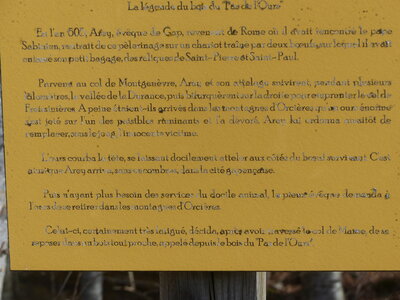 La légende du bois du "Pas de l'Ours"
En l'an 600, Arey, évêque de Gap, revenait de Rome où il avait rencontré le pape
Sabinien, rentrait de ce pèlerinage sur un chariot traîné par deux bœufs sur lequel il avait
entassé son petit bagage, des reliques de Saint-Pierre et Saint-Paul.
Parvenu au col de Montgenèvre, Arey et son attelage suivirent, pendant plusieurs
kilomètres, la vallée de la Durance, puis bifurquèrent sur la droite pour emprunter le col de
Freissinières. A peine étaient-ils arrivés dans les montagnes d'Orcières, qu'un ours énorme
s'est jeté sur l'un des paisibles ruminants et l'a dévoré. Arey lui ordonna aussitôt de
remplacer, sous le joug, l'innocente victime.
L'ours courba la tête, se laissant docilement atteler aux côtés du bœuf survivant. C'est
ainsi que Arey arriva, sans encombres, dans la cité gapençaise.
Puis n'ayant plus besoin des services du docile animal, le pieux évêque le manda à
l'ours de se retirer dans les montagnes d'Orcières.
Celui-ci, certainement très fatigué, décida, après avoir traversé le col de Manse, de se
reposer dans un bois tout proche, appelé depuis, le bois du "Pas de l'Ours".